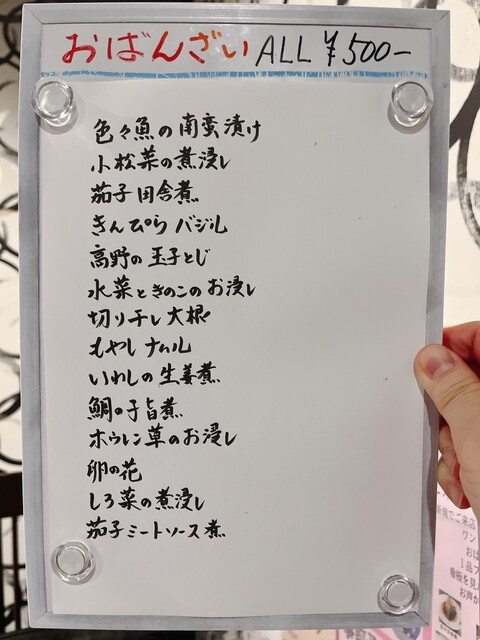 おばんざい ALL ¥500-
色々魚の南蛮漬け
小松菜の煮浸し
茄子田舎煮
きんぴらバジル
高野の玉子とじ
水菜ときのこのお浸し
切り干し大根
もやしナムル
いわしの生姜煮
鯛の子旨煮
ホウレン草のお浸し
卵の花
しろ菜の煮浸し
茄子ミートソース煮
でご来店
ワン
おば
1品プ
看板を見
お声が